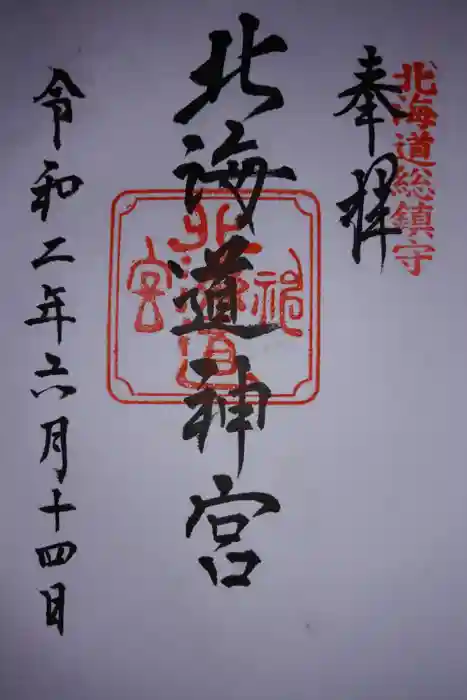 北海道総鎮守
奉拝
北海道神宮
神北海道宮
令和二年六月十四日